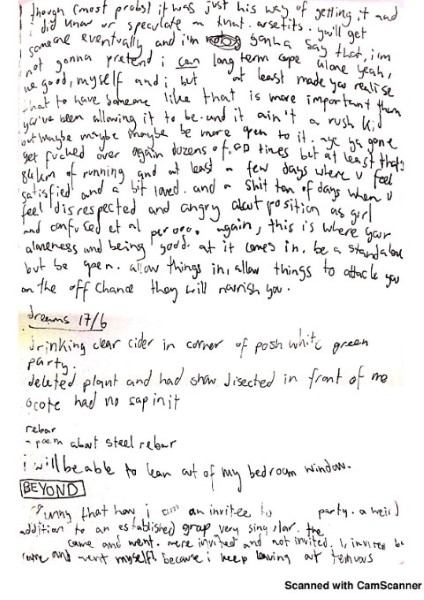 though (most probs) it was just his way of getting it and
i did know or speculate on that. arsetits. you'll get
someone eventually and i'm gonna say that, i'm
not gonna pretend i can long term cope alone yeah,
we good, myself and i but at least made you realise
that to have someone like that is more important than
you've been allowing it to be. and it ain't a rush kid
but maybe maybe maybe be more open to it. aye ya gone
get fucked over again dozens of times but at least that's
84km of running and at least a few days where u feel
satisfied and a bit loved. and a shit ton of days when u
feel disrespected and angry about position as girl
and confused et al again, this is where your
aloneness and being good at it comes in. be a standalone
but be open. allow things in, allow things to attack you
on the off chance they will nourish you.
dreams 17/6
drinking clear cider in corner of posh white green
party.
deleted plant and had show disected in front of me
ocote had no sap in it
rebar
- poem about steel rebar
i will be able to lean out of my bedroom window.
BEYOND
funny that how i am an invitee to party. a weird
addition to an established group very singular. the
came and went. were invited and not invited. i, invitee
came and went myself because i keep leaving out
Scanned with CamScanner